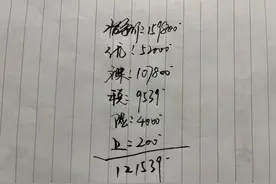 指导价:159800
优:52000
裸:107800
税:9539
险:4000
上=200
121539